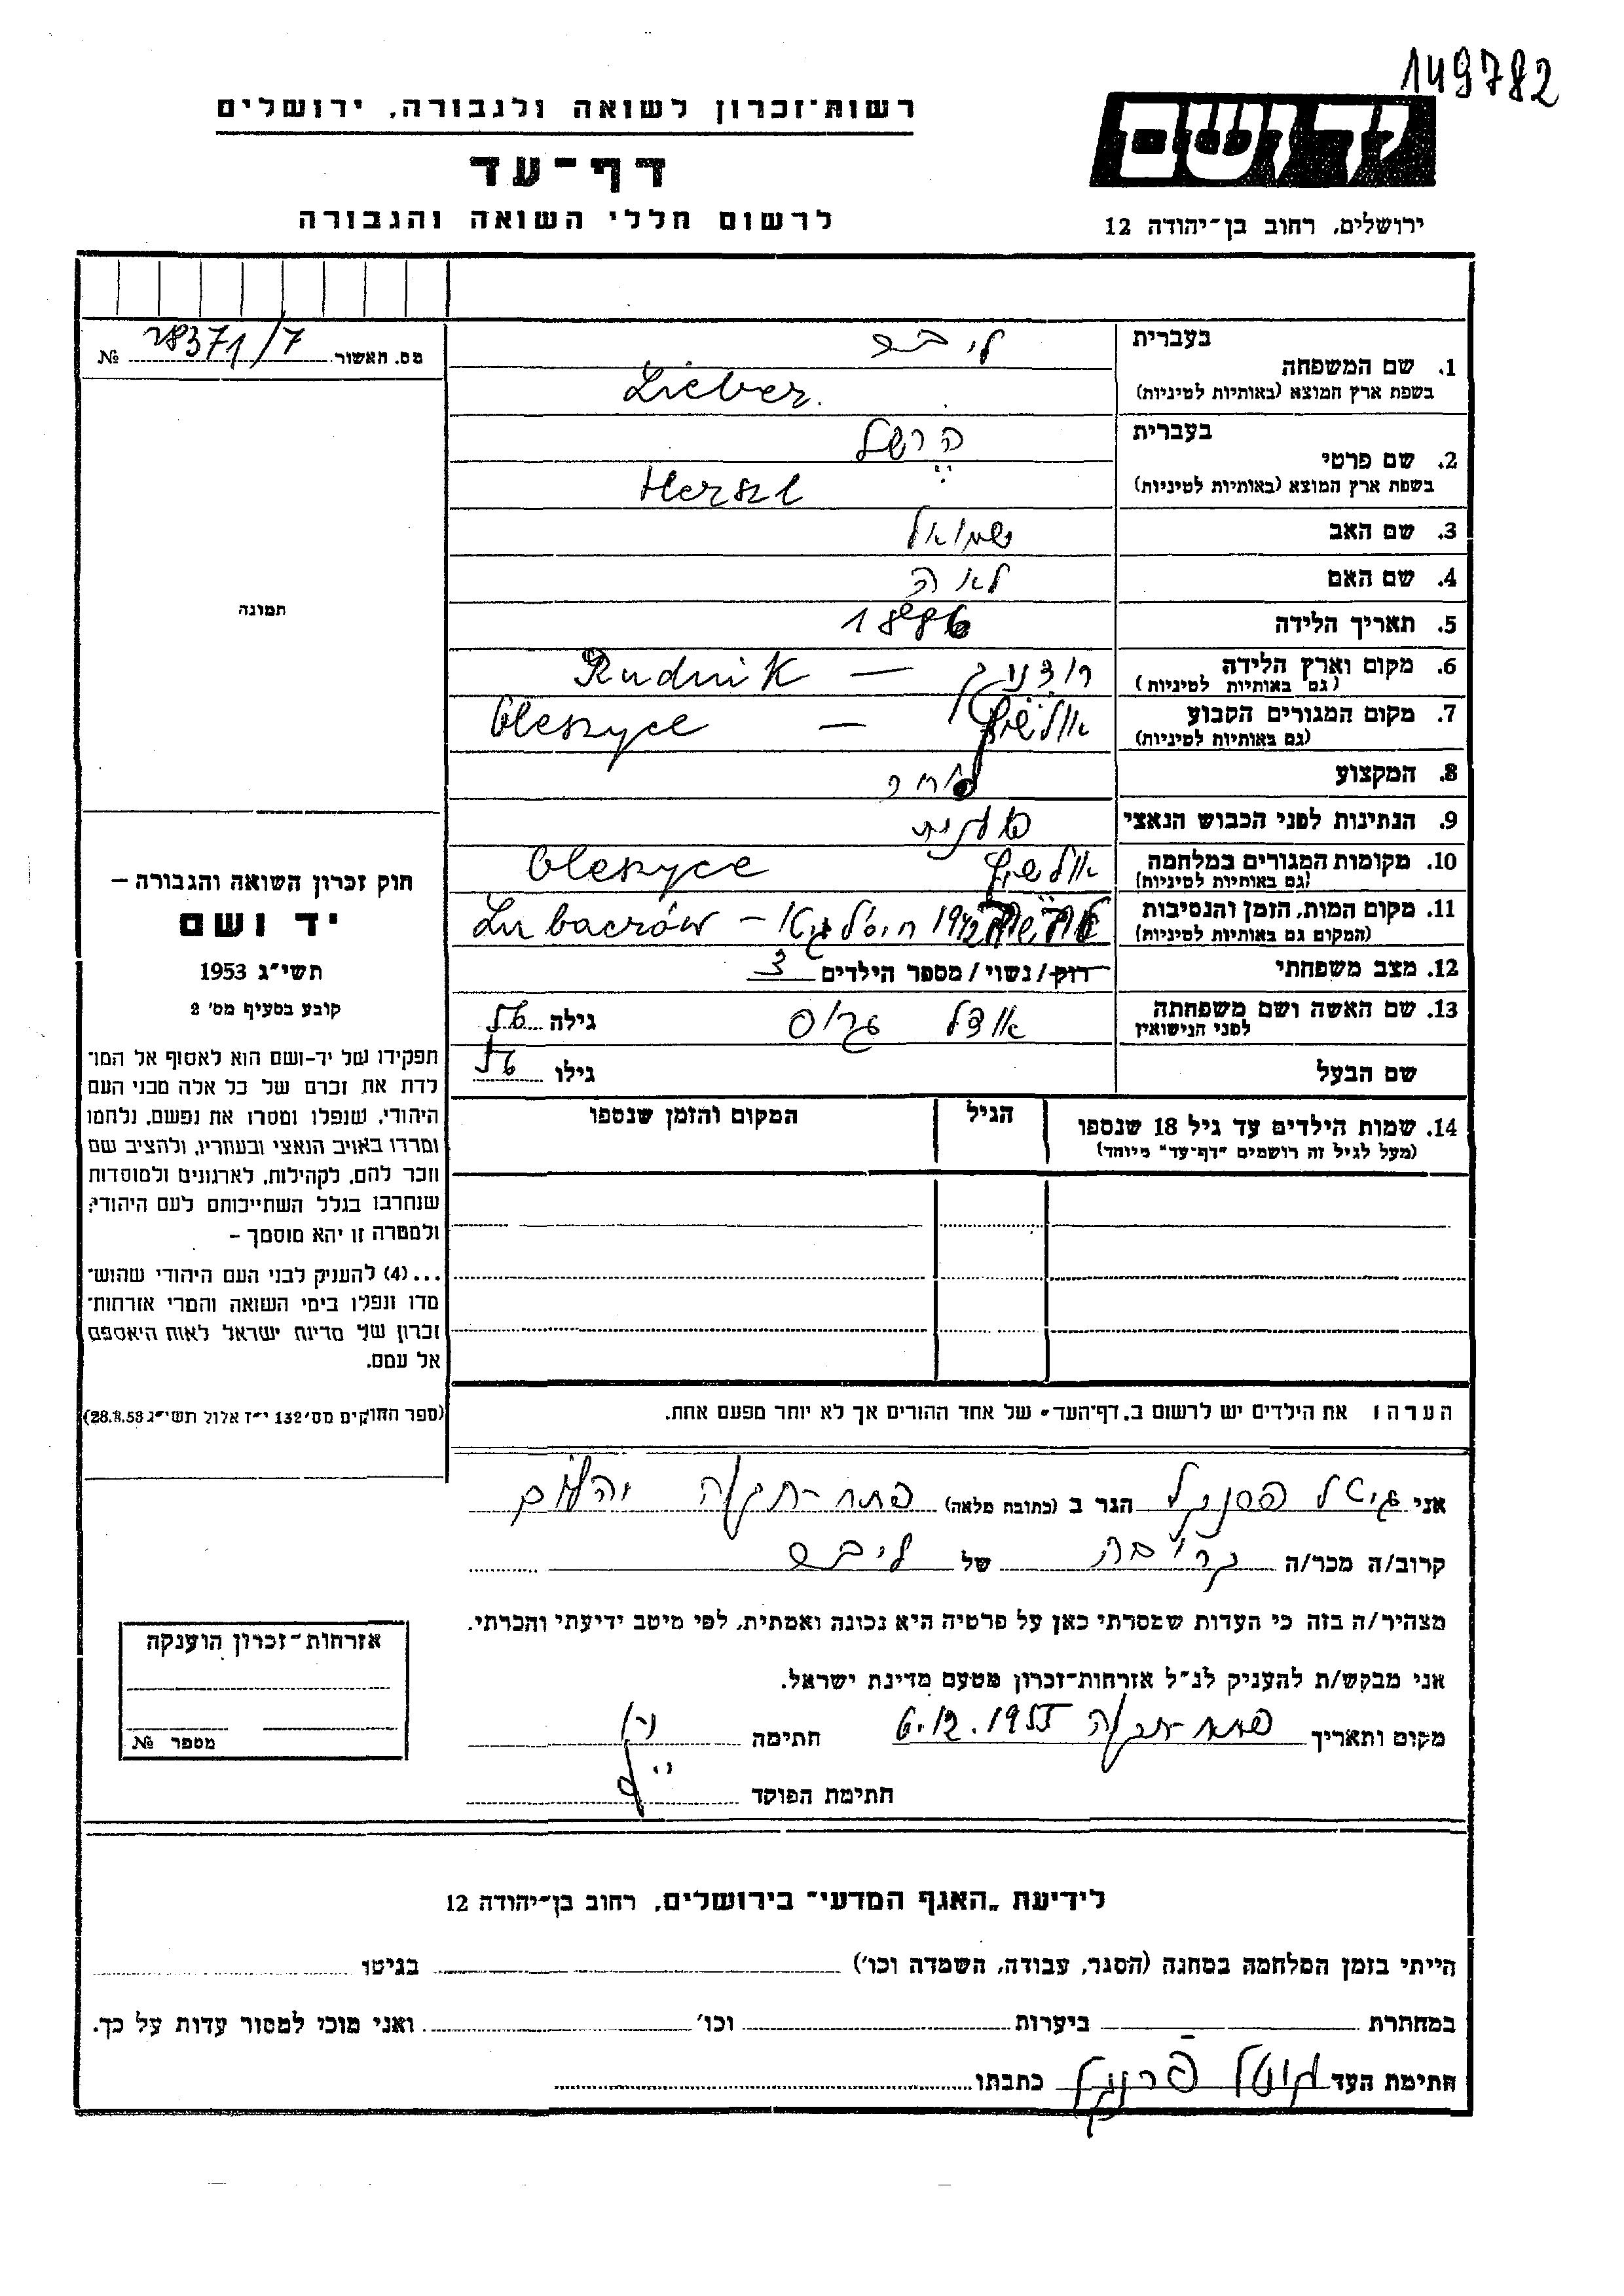 149782
ידושם
ירושלים, רחוב בן־יהודה 12
רשות־זכרון לשואה ולגבורה, ירושלים
דף־עד
לרשום חללי השואה והגבורה
מס. האשור 28371/7 №
תמונה
חוק זכרון השואה והגבורה –
יד ושם
תשי״ג 1953
קובע בסעיף מס׳ 2
תפקידו של יד־ושם הוא לאסוף אל המו־
לדת את זכרם של כל אלה מבני העם
היהודי, שנפלו ומסרו את נפשם, נלחמו
ומרדו באויב הנאצי ובעוזריו, ולהציב שם
וזכר להם, לקהילות, לארגונים ולמוסדות
שנחרבו בגלל השתייכותם לעם היהודי;
ולמטרה זו יהא מוסמך –
...(4) להעניק לבני העם היהודי שהוש־
מדו ונפלו בימי השואה והמרי אזרחות־
זכרון של מדינת ישראל לאות היאספם
אל עמם.
(ספר החוקים מס׳ 132 י״ז אלול תשי״ג 28.8.53)
בעברית ליבר
1. שם המשפחה
בשפת ארץ המוצא (באותיות לטיניות) Lieber.
בעברית הרשל
2. שם פרטי
בשפת ארץ המוצא (באותיות לטיניות) Herszl
3. שם האב שמואל
4. שם האם לאה
5. תאריך הלידה 1886
6. מקום וארץ הלידה רודניק — Rudnik
(גם באותיות לטיניות)
7. מקום המגורים הקבוע אולשיץ — Oleszyce
(גם באותיות לטיניות)
8. המקצוע סוחר
9. הנתינות לפני הכבוש הנאצי פולנית
10. מקומות המגורים במלחמה אולשיץ Oleszyce
(גם באותיות לטיניות)
11. מקום המות, הזמן והנסיבות 1942 חוסל גיטו – Lubaczów
(המקום גם באותיות לטיניות)
12. מצב משפחתי רוק/נשוי/מספר הילדים 3
13. שם האשה ושם משפחתה אודל גרוס גילה 56
לפני הנישואין
שם הבעל גילו 56
14. שמות הילדים עד גיל 18 שנספו הגיל המקום והזמן שנספו
(מעל לגיל זה רושמים ״דף־עד״ מיוחד)
הערה: את הילדים יש לרשום ב„דף־העד״ של אחד ההורים אך לא יותר מפעם אחת.
אני גיטל פרנקל הגר ב (כתובת מלאה) פתח-תקוה
קרוב/ה מכר/ה קרובה של ליבר
מצהיר/ה בזה כי העדות שמסרתי כאן על פרטיה היא נכונה ואמתית, לפי מיטב ידיעתי והכרתי.
אני מבקש/ת להעניק לנ״ל אזרחות־זכרון מטעם מדינת ישראל.
מקום ותאריך פתח-תקוה 6.12.1955 חתימה
חתימת הפוקד
אזרחות־זכרון הוענקה
מספר №
לידיעת „האגף המדעי״ בירושלים, רחוב בן־יהודה 12
הייתי בזמן המלחמה במחנה (הסגר, עבודה, השמדה וכו׳) בגיטו
במחתרת ביערות וכו׳ ואני מוכן למסור עדות על כך.
חתימת העד גיטל פרנקל כתבתו